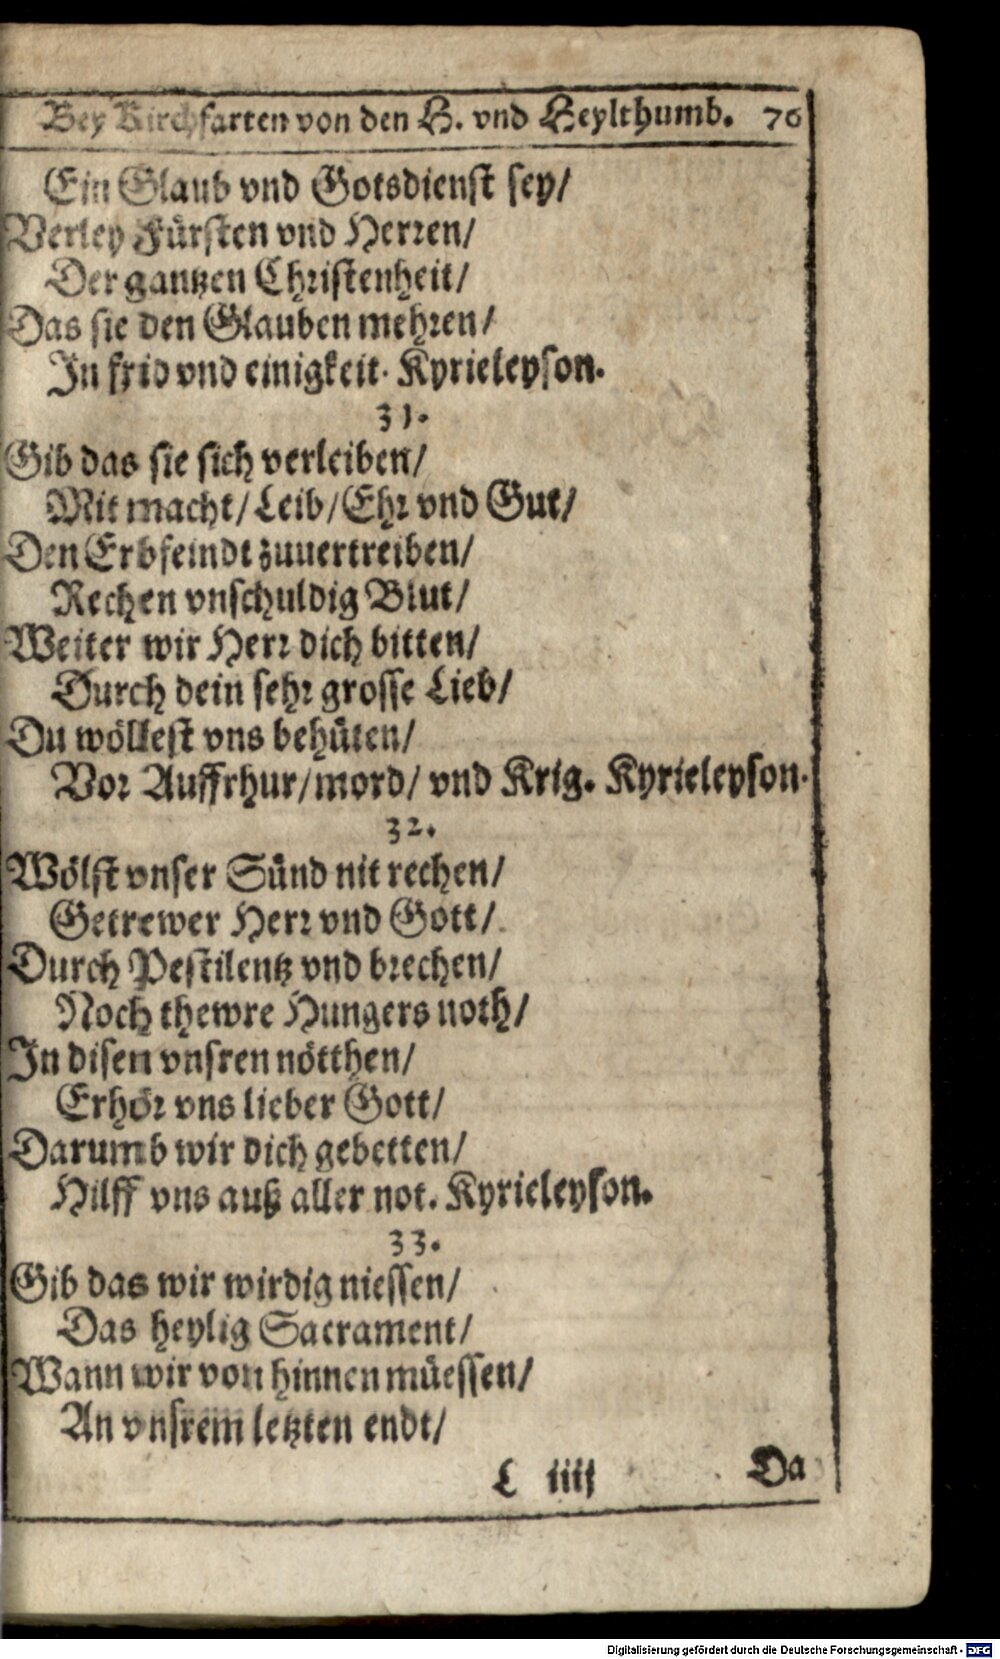 Bey Kirchfarten von den H. vnd Heylthumb. 76
Ein Glaub vnd Gotsdienst sey/
Verley Fürsten vnd Herren/
Der gantzen Christenheit/
Das sie den Glauben mehren/
In frid vnd einigkeit. Kyrieleyson.
31.
Gib das sie sich verleiben/
Mit macht/ Leib/ Ehr vnd Gut/
Den Erbfeindt zuuertreiben/
Rechen vnschuldig Blut/
Weiter wir Herr dich bitten/
Durch dein sehr grosse Lieb/
Du wöllest vns behüten/
Vor Auffrhur/ mord/ vnd Krig. Kyrieleyson.
32.
Wölst vnser Sünd nit rechen/
Getrewer Herr vnd Gott/
Durch Pestilentz vnd brechen/
Noch thewre Hungers noth/
In disen vnsren nötthen/
Erhör vns lieber Gott/
Darumb wir dich gebetten/
Hilff vns auß aller not. Kyrieleyson.
33.
Gib das wir wirdig niessen/
Das heylig Sacrament/
Wann wir von hinnen müessen/
An vnsrem letzten endt/
L iiij Da
Digitalisierung gefördert durch die Deutsche Forschungsgemeinschaft - DFG